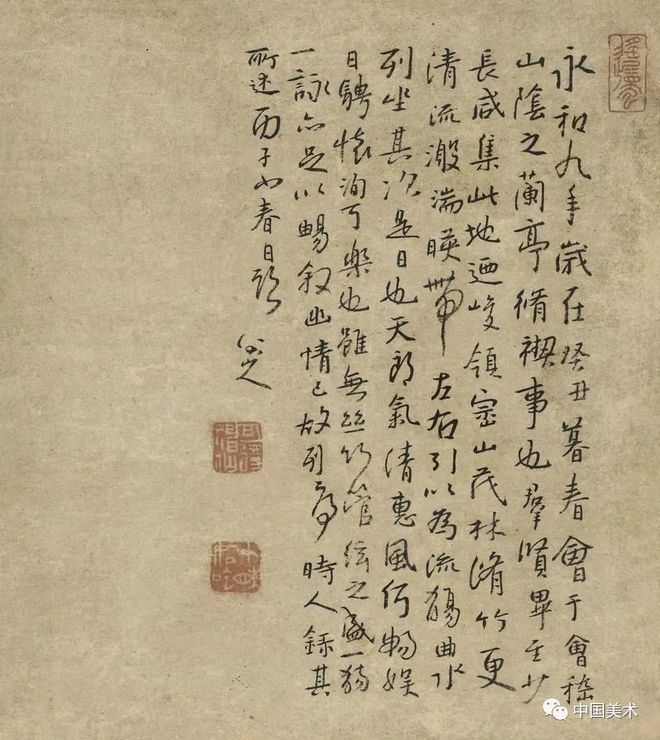 永和九年歲在癸丑暮春會于會稽
山陰之蘭亭脩禊事也羣賢畢至少
長咸集此地迺峻領崇山茂林脩竹更
清流激湍暎帶左右引以為流觴曲水
列坐其次是日也天朗氣清惠風和暢娛
日騁懷洵可樂也雖無絲竹管絃之盛一觴
一詠亦足以暢敘幽情已故列序時人錄其
所述丙子小春日題
八大山人
中国美术